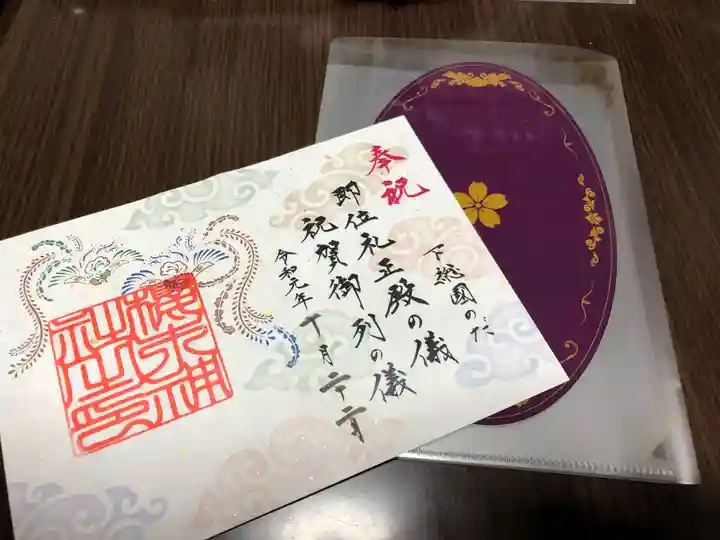 奉祝
下総國のだ
即位礼正殿の儀
祝賀御列の儀
令和元年十月二十二日
櫻木神社之印